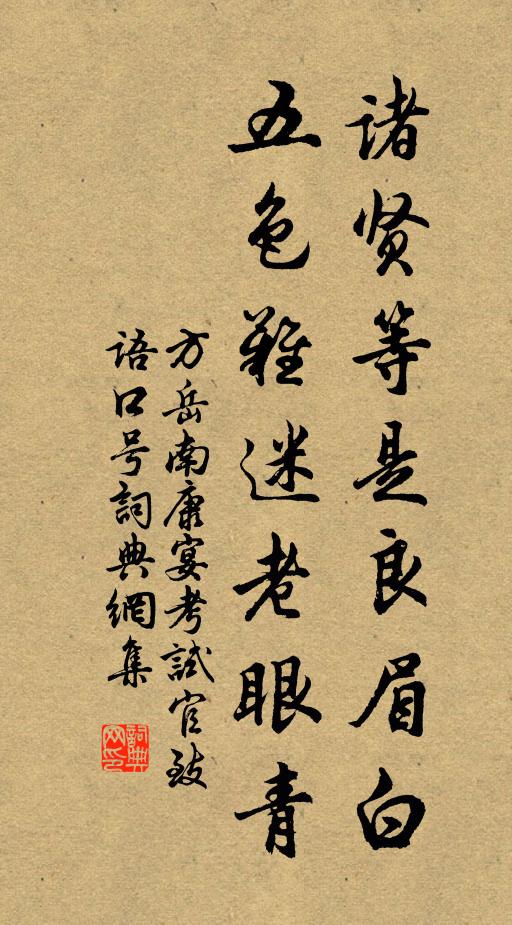 诸贤等是良眉白
五色難迷老眼青
方岳南康宴考試官致
语口号詞典網集
詞典网印